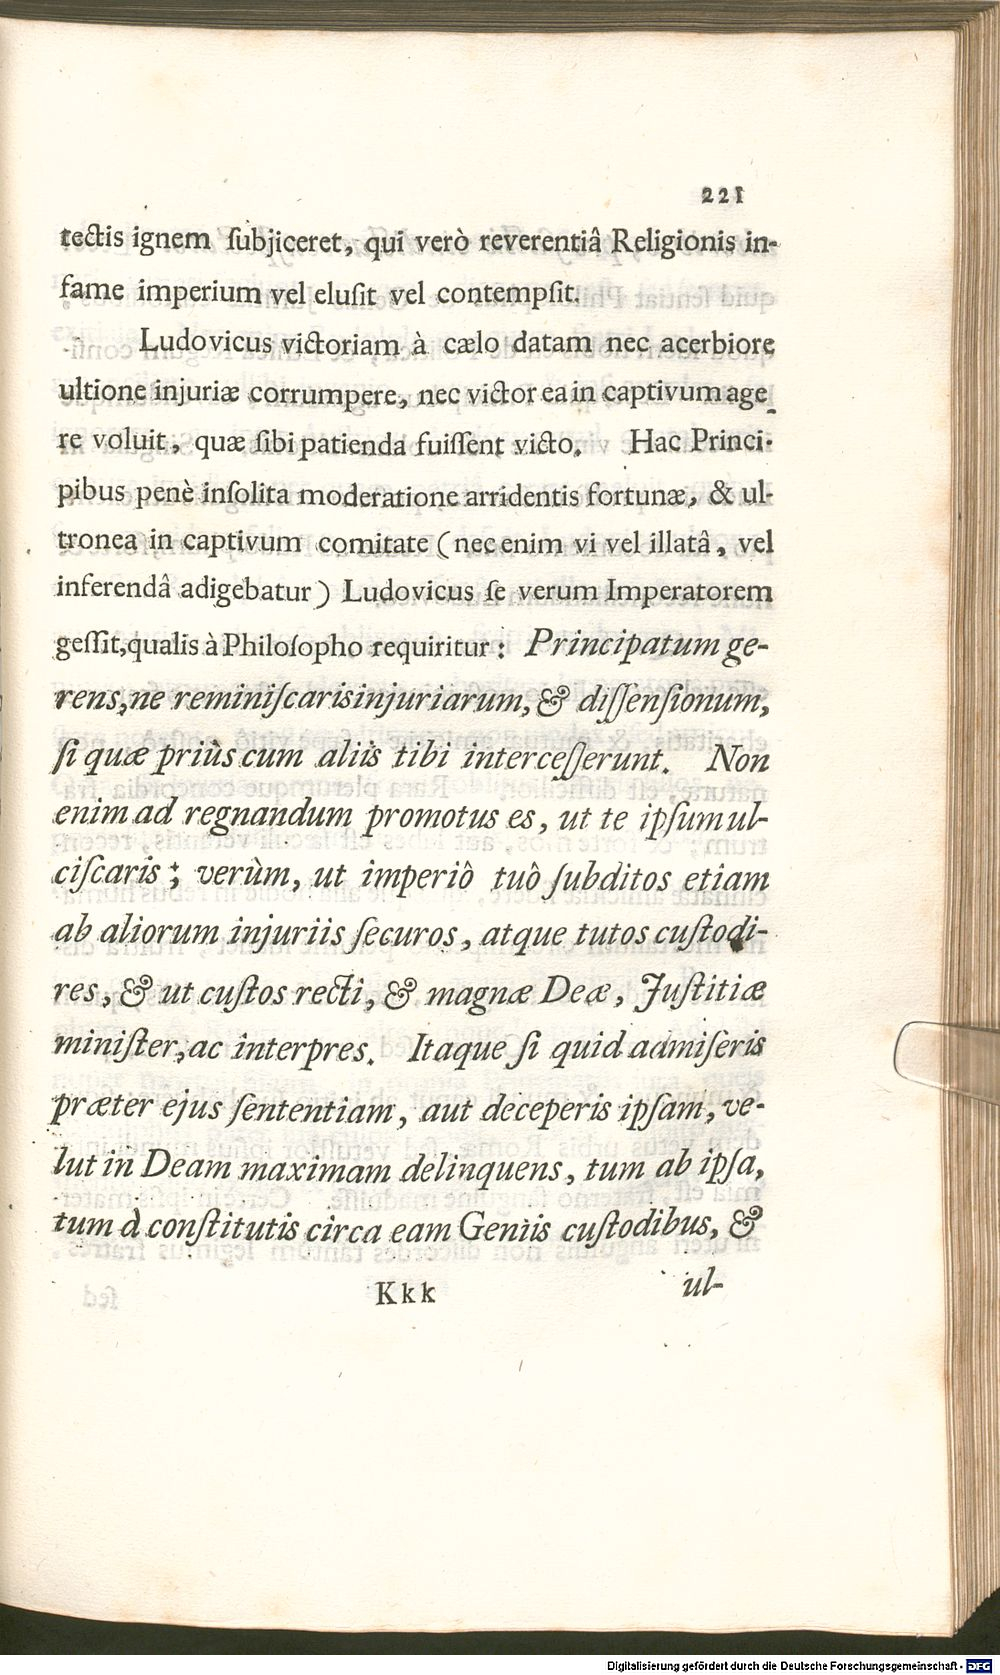 221
tectis ignem ſubjiceret, qui verò reverentiâ Religionis in-
fame imperium vel eluſit vel contempſit.
Ludovicus victoriam à cælo datam nec acerbiore
ultione injuriæ corrumpere, nec victor ea in captivum age-
re voluit, quæ ſibi patienda fuiſſent victo. Hac Princi-
pibus penè inſolita moderatione arridentis fortunæ, & ul-
tronea in captivum comitate (nec enim vi vel illatâ, vel
inferendâ adigebatur) Ludovicus ſe verum Imperatorem
geſſit, qualis à Philoſopho requiritur: Principatum ge-
rens, ne reminiſcaris injuriarum, & diſſenſionum,
ſi quæ priùs cum aliis tibi interceſſerunt. Non
enim ad regnandum promotus es, ut te ipſum ul-
ciſcaris; verùm, ut imperiô tuô ſubditos etiam
ab aliorum injuriis ſecuros, atque tutos cuſtodi-
res, & ut cuſtos recti, & magnæ Deæ, Juſtitiæ
miniſter, ac interpres. Itaque ſi quid admiſeris
præter ejus ſententiam, aut deceperis ipſam, ve-
lut in Deam maximam delinquens, tum ab ipſa,
tum à conſtitutis circa eam Geniis cuſtodibus, &
Kkk ul-
Digitalisierung gefördert durch die Deutsche Forschungsgemeinschaft - DFG